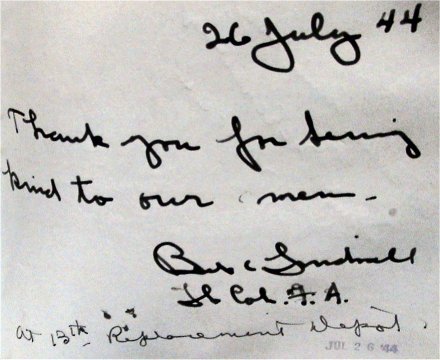 26 July 44
Thank you for being
kind to our men -
Bob C
Lt Col. F. A.
At 13th Replacement Depot.
JUL 26 '44